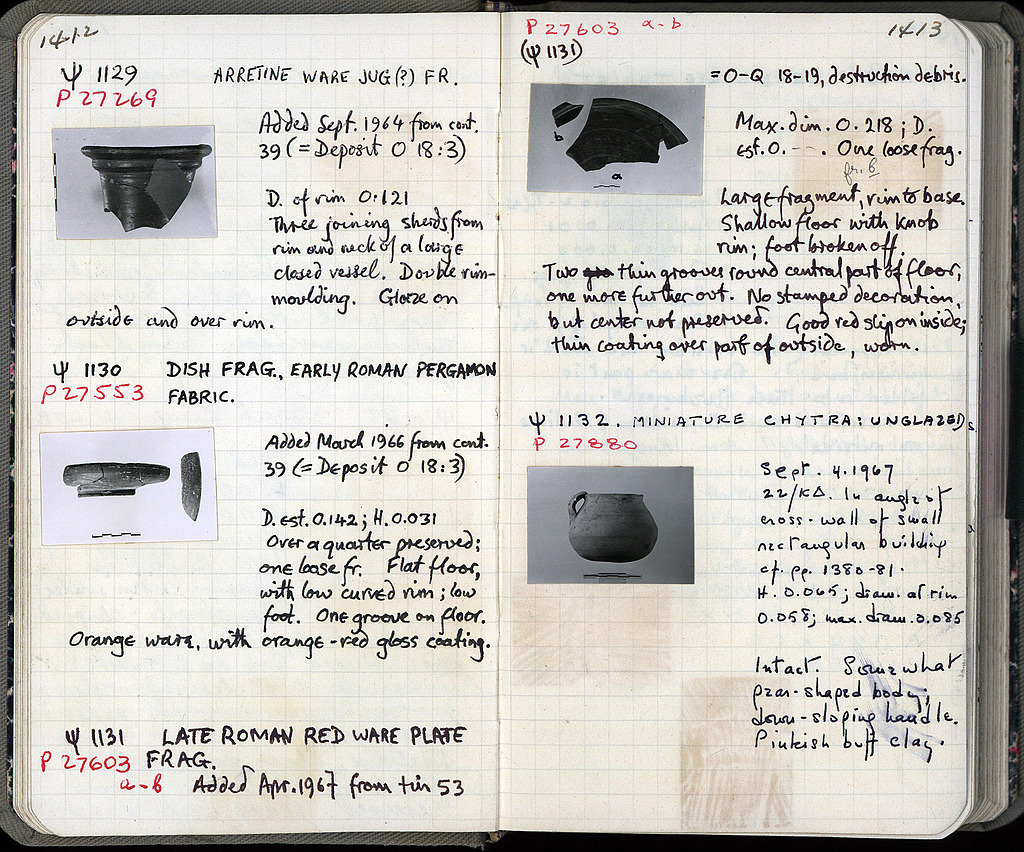 1412
Ψ 1129 ARRETINE WARE JUG(?) FR.
P 27269
Added Sept. 1964 from cont.
39 (= Deposit O 18:3)
D. of rim 0.121
Three joining sherds from
rim and neck of a large
closed vessel. Double rim-
moulding. Glaze on
outside and over rim.
Ψ 1130 DISH FRAG., EARLY ROMAN PERGAMON
P 27553 FABRIC.
Added March 1966 from cont.
39 (= Deposit O 18:3)
D. est. 0.142; H. 0.031
Over a quarter preserved;
one loose fr. Flat floor,
with low curved rim; low
foot. One groove on floor.
Orange ware, with orange-red gloss coating.
Ψ 1131 LATE ROMAN RED WARE PLATE
P 27603 FRAG.
a-b Added Apr. 1967 from tin 53
P 27603 a-b 1413
(Ψ 1131)
= O-Q 18-19, destruction debris.
b
a
Max. dim. 0.218; D.
est. 0. --. One loose frag.
fr. b
Large fragment, rim to base.
Shallow floor with knob
rim; foot broken off.
Two thin grooves round central part of floor,
one more further out. No stamped decoration,
but center not preserved. Good red slip on inside;
thin coating over part of outside, worn.
Ψ 1132. MINIATURE CHYTRA: UNGLAZED
P 27880
Sept. 4. 1967
22/ΚΔ. In angle of
cross-wall of small
rectangular building
cf. pp. 1380-81.
H. 0.065; diam. of rim
0.058; max. diam. 0.085
Intact. Somewhat
pear-shaped body;
down-sloping handle.
Pinkish buff clay.